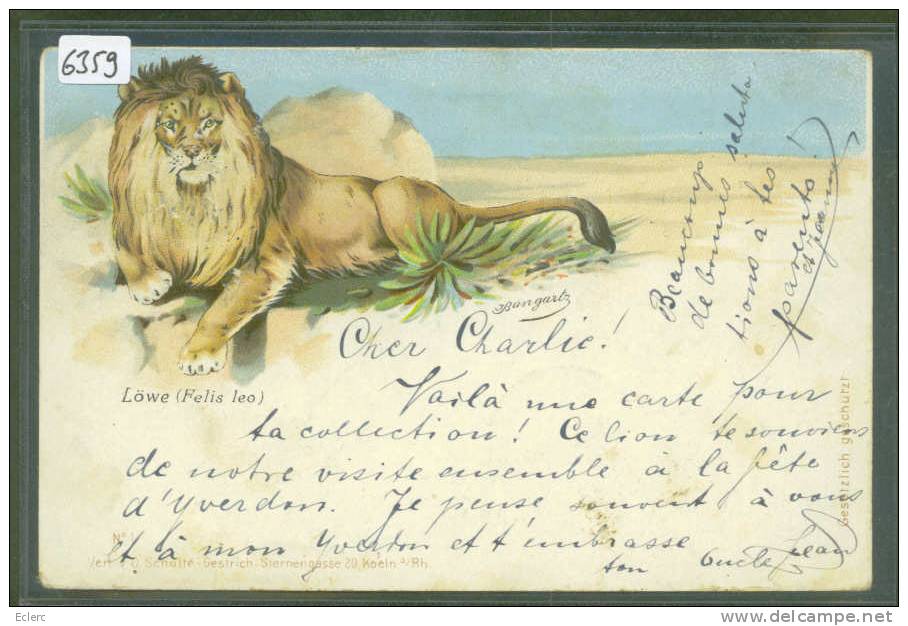 6359
Bungartz
Löwe (Felis leo)
Cher Charlie!
Voilà une carte pour
ta collection! Ce lion te souviens
de notre visite ensemble à la fête
d'Yverdon. Je pense souvent à vous
et à mon Yverdon et t'embrasse
ton Oncle Jean
Beaucoup
de bonnes saluta
tions à tes
parents!
et Jeanne
Gesetzlich geschützt
No
Schulte-Gestrich Sternengasse 20 Koeln a/Rh.
Eclerc
www.delcampe.net